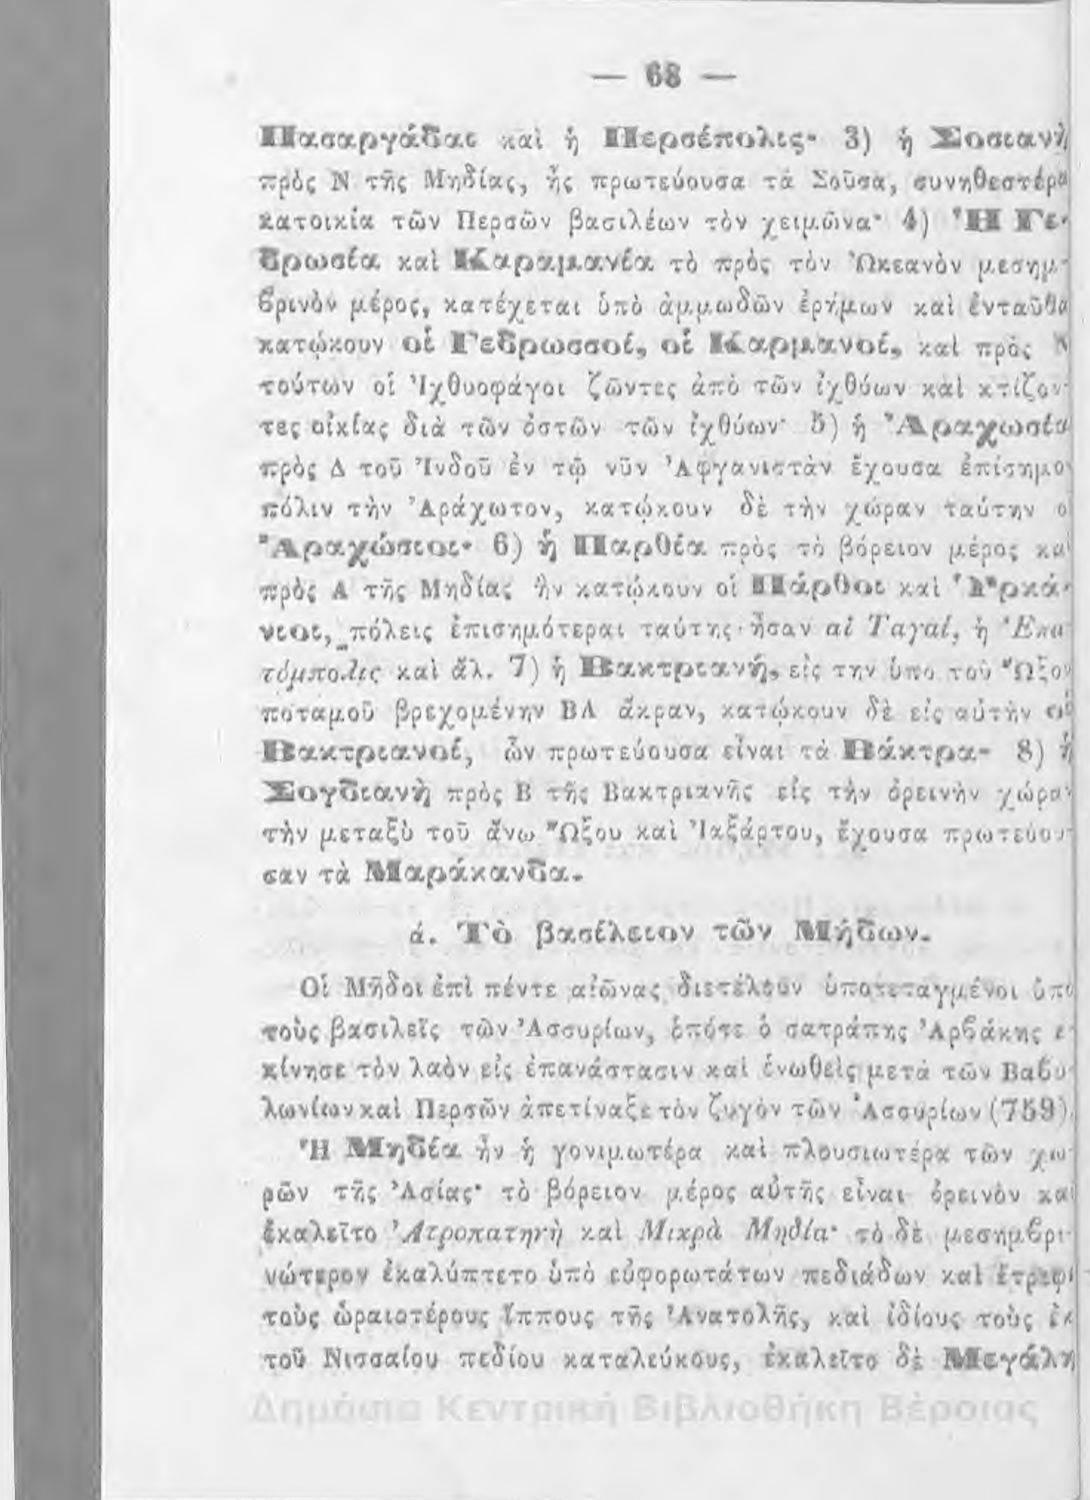 — 68 —
Πασαργάδαι καὶ ἡ Περσέπολις· 3) ἡ Σοσιανὴ
πρὸς Ν τῆς Μηδίας, ἧς πρωτεύουσα τὰ Σοῦσα, συνηθεστέρα
κατοικία τῶν Περσῶν βασιλέων τὸν χειμῶνα· 4) Ἡ Γε-
δρωσία καὶ Καραμανία τὸ πρὸς τὸν Ὠκεανὸν μεσημ-
βρινὸν μέρος, κατέχεται ὑπὸ ἀμμωδῶν ἐρήμων καὶ ἐνταῦθα
κατῴκουν οἱ Γεδρωσσοί, οἱ Καρμανοί, καὶ πρὸς Ν
τούτων οἱ Ἰχθυοφάγοι ζῶντες ἀπὸ τῶν ἰχθύων καὶ κτίζον-
τες οἰκίας διὰ τῶν ὀστῶν τῶν ἰχθύων· 5) ἡ Ἀραχωσία
πρὸς Δ τοῦ Ἰνδοῦ ἐν τῷ νῦν Ἀφγανιστὰν ἔχουσα ἐπίσημον
πόλιν τὴν Ἀράχωτον, κατῴκουν δὲ τὴν χώραν ταύτην οἱ
Ἀραχώσιοι· 6) ἡ Παρθία πρὸς τὸ βόρειον μέρος καὶ
πρὸς Α τῆς Μηδίας ἣν κατῴκουν οἱ Πάρθοι καὶ Ὑρκά-
νιοι, πόλεις ἐπισημότεραι ταύτης ἦσαν αἱ Ταγαί, ἡ Ἑκα
τόμπολις καὶ ἄλ. 7) ἡ Βακτριανή, εἰς τὴν ὑπὸ τοῦ Ὤξου
ποταμοῦ βρεχομένην ΒΑ ἄκραν, κατῴκουν δὲ εἰς αὐτὴν οἱ
Βακτριανοί, ὧν πρωτεύουσα εἶναι τὰ Βάκτρα· 8) ἡ
Σογδιανὴ πρὸς Β τῆς Βακτριανῆς εἰς τὴν ὀρεινὴν χώραν
τὴν μεταξὺ τοῦ ἄνω Ὤξου καὶ Ἰαξάρτου, ἔχουσα πρωτεύου-
σαν τὰ Μαράκανδα.
ά. Τὸ βασίλειον τῶν Μήδων.
Οἱ Μῆδοι ἐπὶ πέντε αἰῶνας διετέλουν ὑποτεταγμένοι ὑπὸ
τοὺς βασιλεῖς τῶν Ἀσσυρίων, ὁπότε ὁ σατράπης Ἀρβάκης ἐ-
κίνησε τὸν λαὸν εἰς ἐπανάστασιν καὶ ἑνωθεὶς μετὰ τῶν Βαβυ-
λωνίων καὶ Περσῶν ἀπετίναξε τὸν ζυγὸν τῶν Ἀσσυρίων (759).
Ἡ Μηδία ἦν ἡ γονιμωτέρα καὶ πλουσιωτέρα τῶν χω-
ρῶν τῆς Ἀσίας· τὸ βόρειον μέρος αὐτῆς εἶναι ὀρεινὸν καὶ
ἐκαλεῖτο Ἀτροπατηνὴ καὶ Μικρὰ Μηδία· τὸ δὲ μεσημβρι-
νώτερον ἐκαλύπτετο ὑπὸ εὐφορωτάτων πεδιάδων καὶ ἔτρεφε
τοὺς ὡραιοτέρους ἵππους τῆς Ἀνατολῆς, καὶ ἰδίους τοὺς ἐκ
τοῦ Νισσαίου πεδίου καταλεύκους, ἐκαλεῖτο δὲ Μεγάλη
Δημόσια Κεντρική Βιβλιοθήκη Βέροιας